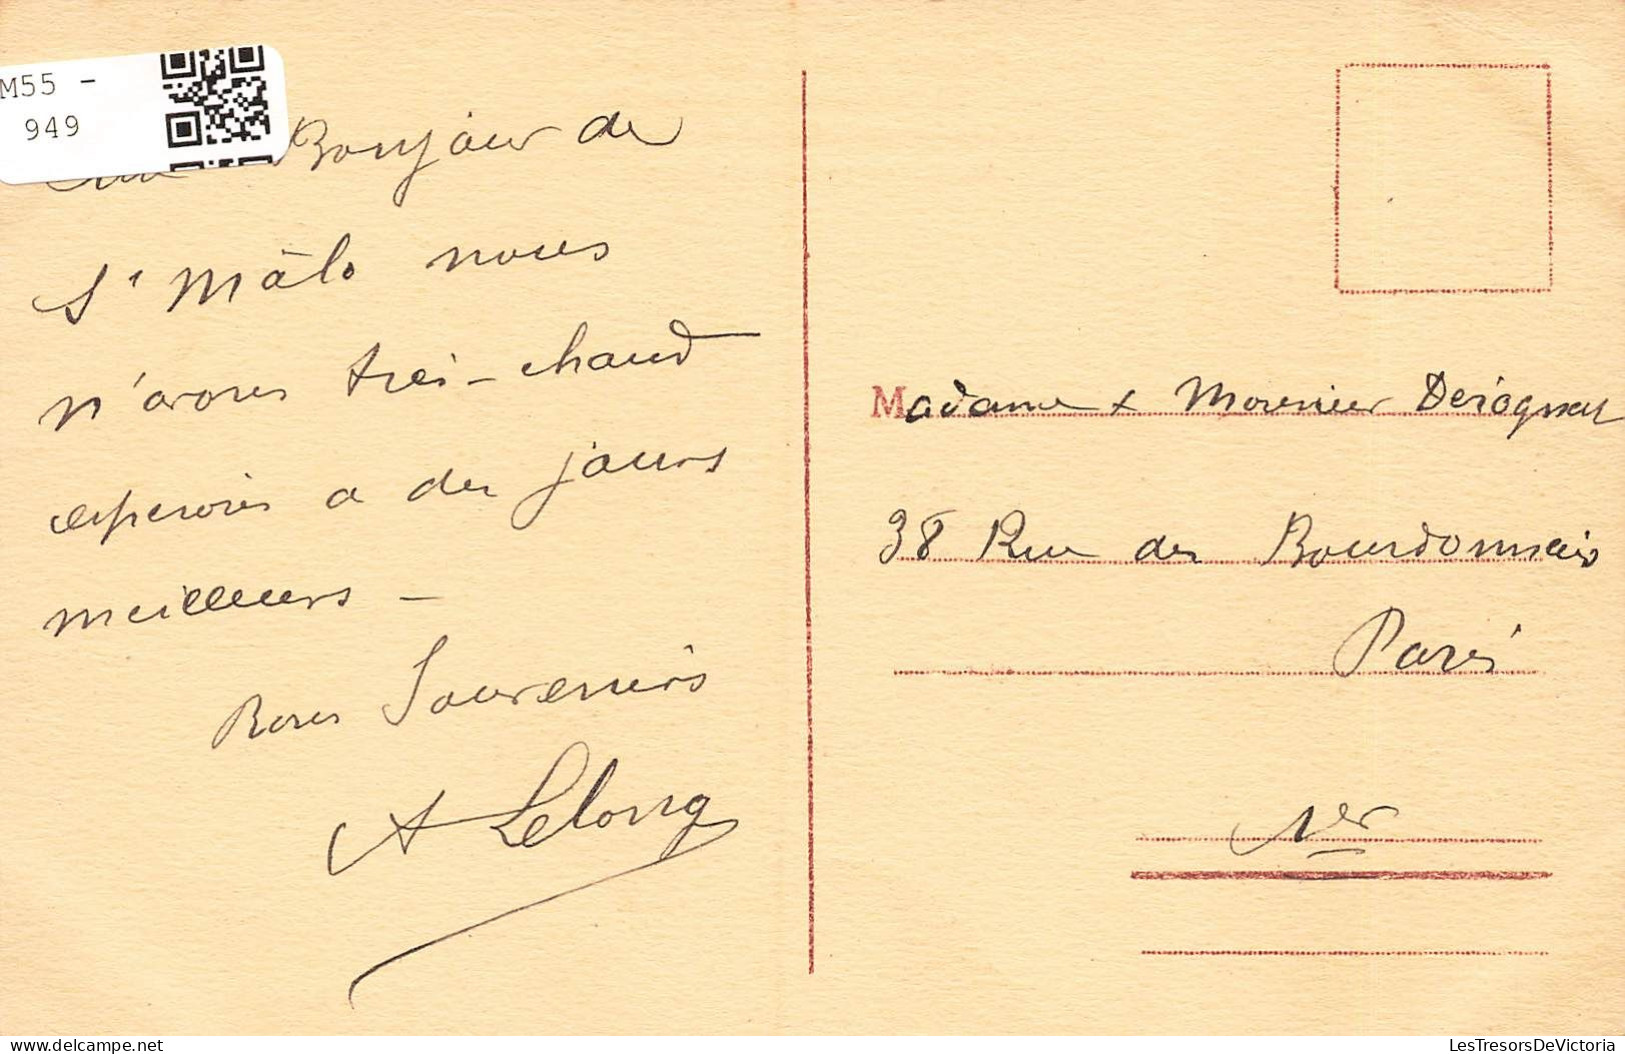 M55 -
949
Bonjour de
St Mâlo nous
n'avons très-chaud
esperons a des jours
meilleurs -
Bons Souvenirs
A Lelong
Madame & Monsieur
38 Rue des Bourdonnais
Paris
1er
LesTresorsDeVictoria
delcampe.net